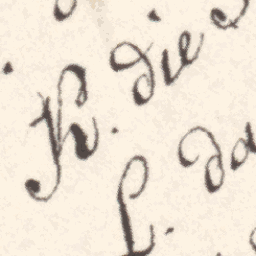 K. die
L. da